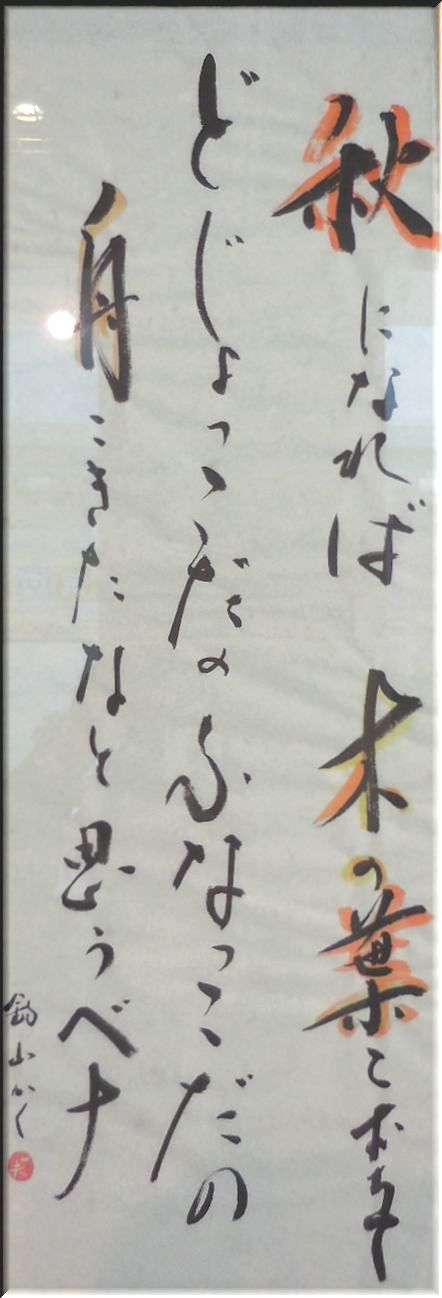 秋になれば 木の葉こおちて
どじょっこだのふなっこだの
舟こきたなと思うべナ